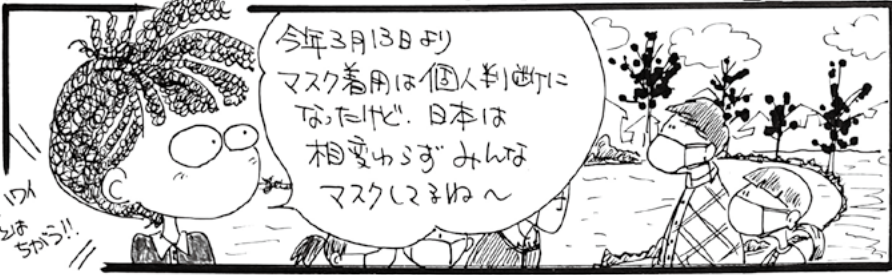 今年3月13日より
マスク着用は個人判断に
なったけど、日本は
相変わらずみんな
マスクしてるね〜
ハワイ
とは
ちがう!!